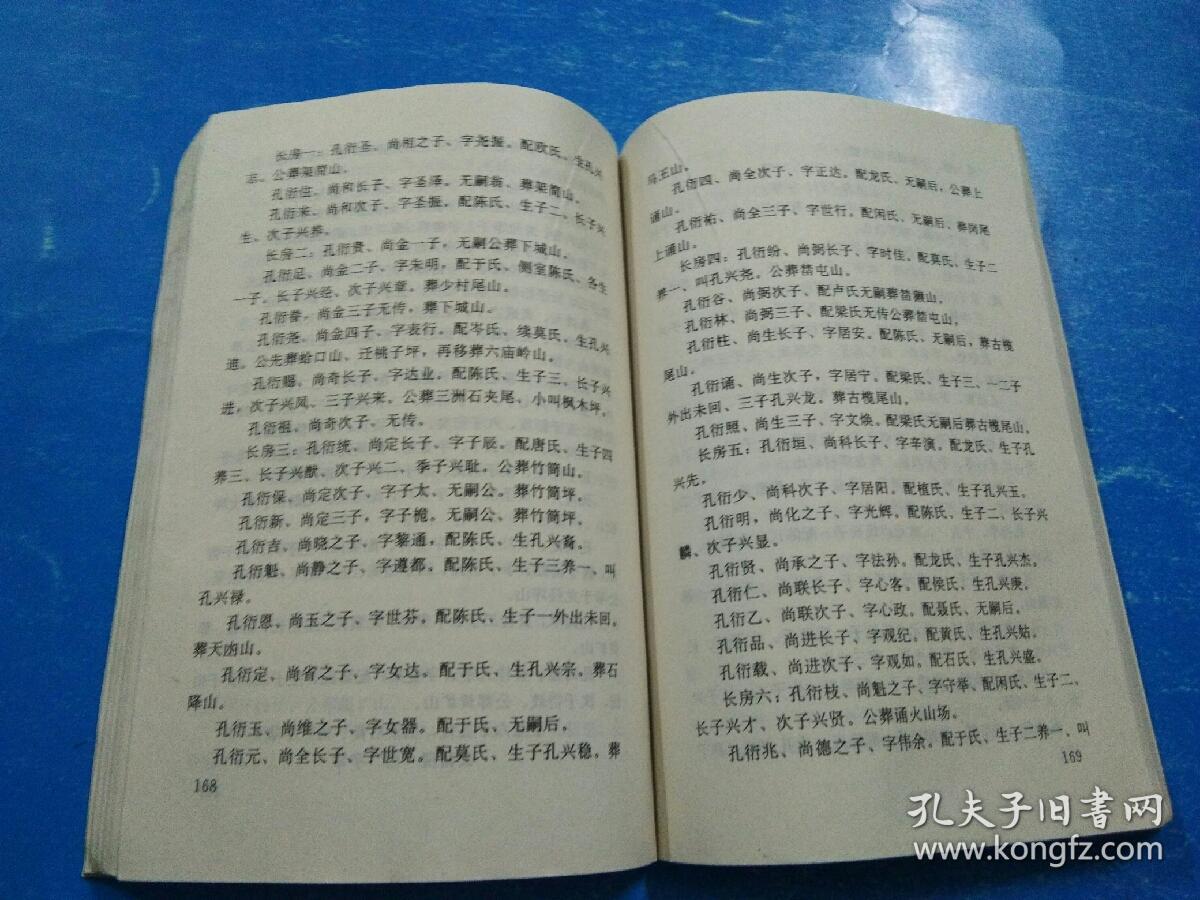 长房一：孔衍圣、尚相之子、字尧振。配欧氏、生孔兴
志。公葬架筒山。
孔衍位、尚和长子、字圣泽。无嗣翁、葬架筒山。
孔衍来、尚和次子、字圣振。配陈氏、生子二、长子兴
生、次子兴养。
长房二：孔衍贵、尚金一子，无嗣公葬下城山。
孔衍足、尚金二子、字朱明，配于氏、侧室陈氏、各生
一子。长子兴经、次子兴章。葬少村尾山。
孔衍眷、尚金三子无传，葬下城山。
孔衍尧、尚金四子、字表行。配岑氏、续莫氏、生孔兴
进。公先葬蛤口山、迁桃子坪，再移葬六庙岭山。
孔衍赐、尚奇长子、字达业。配陈氏、生子三、长子兴
进，次子兴凤、三子兴来。公葬三洲石夹尾、小叫枫木坪。
孔衍祖、尚奇次子、无传。
长房三：孔衍统、尚定长子、字子辰。配唐氏、生子四
养三、长子兴猷、次子兴二、季子兴耻。公葬竹筒山。
孔衍保、尚定次子、字子太、无嗣公。葬竹筒坪。
孔衍新、尚定三子，字子桅。无嗣公、葬竹筒坪。
孔衍吉、尚晓之子、字黎通，配陈氏、生孔兴裔。
孔衍魁、尚静之子、字遵都。配陈氏、生子三养一、叫
孔兴禄。
孔衍恩、尚玉之子、字世芬。配陈氏、生子一外出未回，
葬天凼山。
孔衍定、尚省之子、字女达。配于氏、生孔兴宗。葬石
降山。
孔衍玉、尚维之子、字女器。配于氏、无嗣后。
孔衍元、尚全长子、字世宽。配莫氏、生子孔兴稳。葬
168
玉山。
孔衍四、尚全次子、字正达。配龙氏、无嗣后，公葬上
通山。
孔衍祐、尚全三子、字世行。配闲氏、无嗣后，葬岗尾
上通山。
长房四：孔衍纷、尚弼长子、字时佳。配莫氏、生子二
养一、叫孔兴尧。公葬榃屯山。
孔衍谷、尚弼次子、配卢氏无嗣葬榃獭山。
孔衍林、尚弼三子、配梁氏无传公葬榃屯山。
孔衍柱、尚生长子、字居安。配陈氏、无嗣后，葬古榄
尾山。
孔衍诵、尚生次子，字居宁。配梁氏、生子三、一二子
外出未回、三子孔兴龙。葬古榄尾山。
孔衍照、尚生三子、字文焕。配梁氏无嗣后葬古榄尾山。
长房五：孔衍垣、尚科长子、字辛演。配龙氏、生子孔
兴先。
孔衍少、尚科次子、字居阳。配植氏、生子孔兴玉。
孔衍明，尚化之子、字光辉。配陈氏、生子二、长子兴
麟、次子兴显。
孔衍贤、尚承之子、字法孙。配龙氏、生子孔兴杰。
孔衍仁、尚联长子、字心客。配侯氏、生子孔兴庚。
孔衍乙、尚联次子、字心政。配聂氏、无嗣后。
孔衍品、尚进长子、字观纪。配黄氏、生子孔兴姑。
孔衍载、尚进次子、字观如。配石氏、生孔兴盛。
长房六：孔衍枝、尚魁之子、字守举、配闲氏、生子二、
长子兴才、次子兴贤。公葬诵火山场。
孔衍兆、尚德之子、字伟余。配于氏、生子二养一、叫
169
孔夫子旧书网
www.kongfz.com